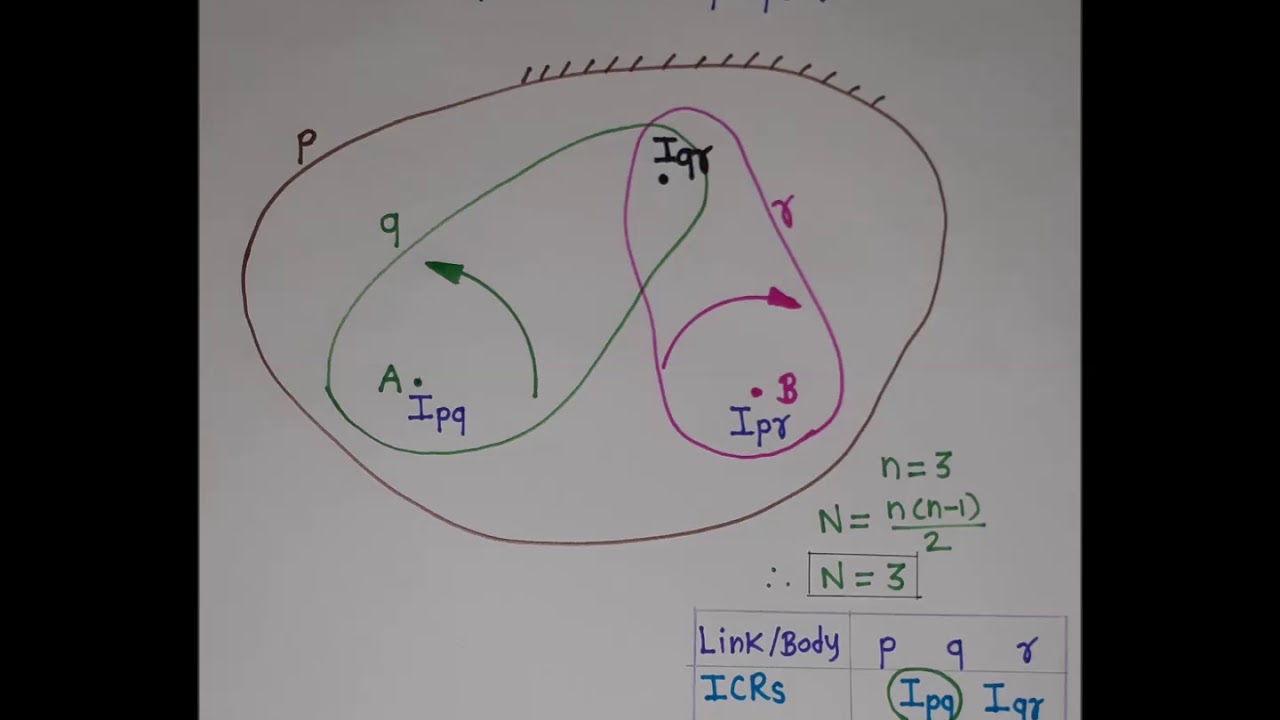 p
Iqr
q
r
A
Ipq
B
Ipr
n = 3
N = n(n-1)/2
∴ N = 3
Link/Body p q r
ICRs Ipq Iqr